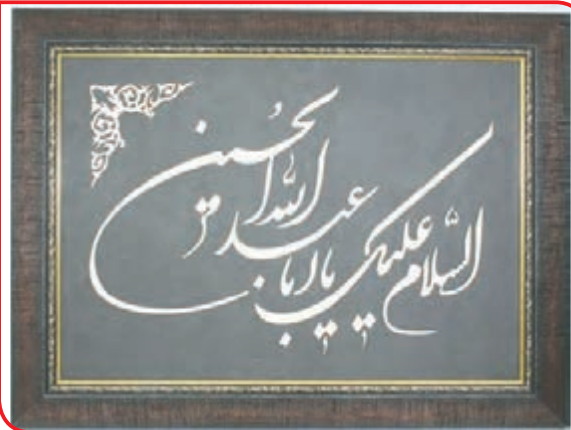 السلام علیک یا ابا عبد الله الحسین